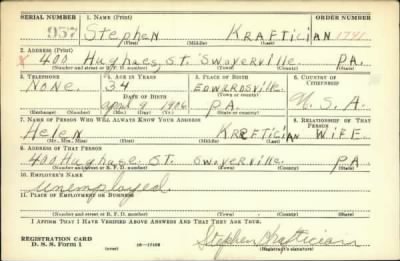 SERIAL NUMBER 1. NAME (Print) ORDER NUMBER
957 Stephen KRAFTICIAN 1791
(First) (Middle) (Last)
2. ADDRESS (Print)
x 400 Hughes ST. Swoyerville PA.
(Number and street or R. F. D. number) (Town) (County) (State)
3. TELEPHONE 4. AGE IN YEARS 5. PLACE OF BIRTH 6. COUNTRY OF CITIZENSHIP
NONE. 34 EDWARDSVILLE U. S. A.
DATE OF BIRTH (Town or county)
April 9 1906 PA.
(Exchange) (Number) (Mo.) (Day) (Yr.) (State or country)
7. NAME OF PERSON WHO WILL ALWAYS KNOW YOUR ADDRESS 8. RELATIONSHIP OF THAT PERSON
Helen KRAFTICIAN WIFE
(Mr., Mrs., Miss) (First) (Middle) (Last)
9. ADDRESS OF THAT PERSON
400 Hughase ST. Swoyerville. PA
(Number and street or R. F. D. number) (Town) (County) (State)
10. EMPLOYER'S NAME
unemployed.
11. PLACE OF EMPLOYMENT OR BUSINESS
(Number and street or R. F. D. number) (Town) (County) (State)
I AFFIRM THAT I HAVE VERIFIED ABOVE ANSWERS AND THAT THEY ARE TRUE.
REGISTRATION CARD Stephen Kraftician
D. S. S. FORM 1 (Registrant's signature)